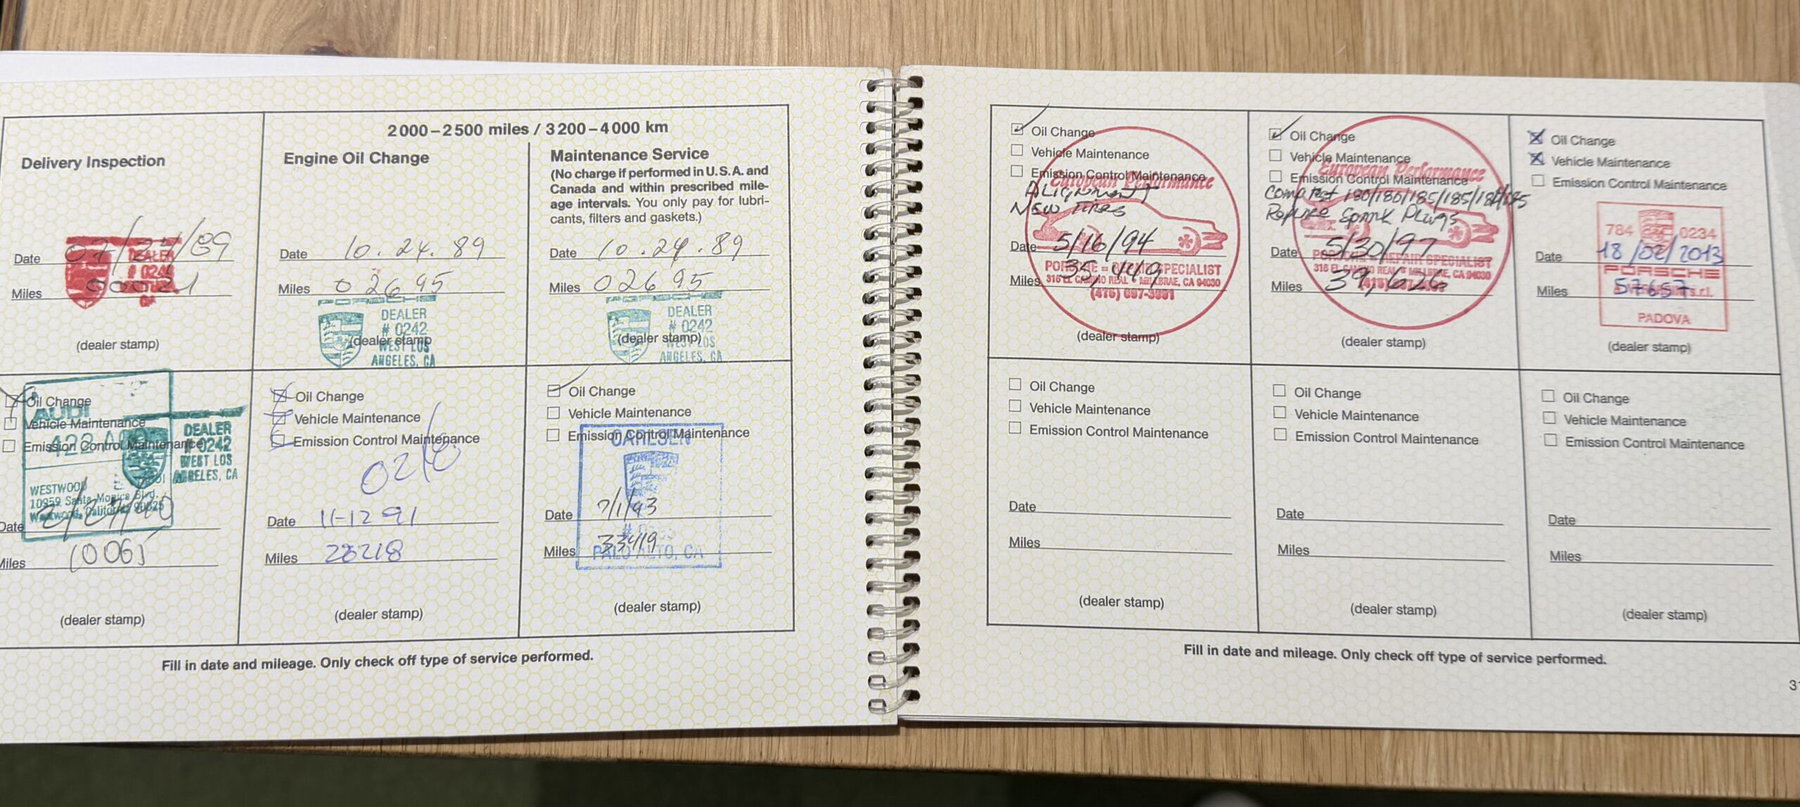 Delivery Inspection
Date 07/27/89
Miles 00021
DEALER
# 0242
(dealer stamp)
2000–2500 miles / 3200–4000 km
Engine Oil Change
Date 10.24.89
Miles 02695
DEALER
# 0242
WEST LOS
ANGELES, CA
(dealer stamp)
Maintenance Service
(No charge if performed in U.S.A. and
Canada and within prescribed mile-
age intervals. You only pay for lubri-
cants, filters and gaskets.)
Date 10.24.89
Miles 02695
DEALER
# 0242
WEST LOS
ANGELES, CA
(dealer stamp)
Oil Change
Vehicle Maintenance
Emission Control Maintenance
AUDI
DEALER
# 0242
WEST LOS
ANGELES, CA
WESTWOOD
10959 Santa Monica Blvd.
Westwood, California 90025
Date
Miles
(dealer stamp)
Oil Change
Vehicle Maintenance
Emission Control Maintenance
Date 11-12 91
Miles 28218
(dealer stamp)
Oil Change
Vehicle Maintenance
Emission Control Maintenance
CARLSEN
Date 7/1/93
Miles 33419
PALO ALTO, CA
(dealer stamp)
Fill in date and mileage. Only check off type of service performed.
Oil Change
Vehicle Maintenance
Emission Control Maintenance
European Performance
Alignment
New Tires
Date 5/16/94
Miles 35,449
SPECIALIST
316 EL CAMINO REAL • MILLBRAE, CA 94030
(415) 697-3881
(dealer stamp)
Oil Change
Vehicle Maintenance
Emission Control Maintenance
European Performance
Replace Spark Plugs
Date 5/30/97
REPAIR SPECIALIST
316 EL CAMINO REAL • MILLBRAE, CA 94030
Miles
(dealer stamp)
Oil Change
Vehicle Maintenance
Emission Control Maintenance
784 0234
Date 18/02/2013
PORSCHE
Miles 57657
s.r.l.
PADOVA
(dealer stamp)
Oil Change
Vehicle Maintenance
Emission Control Maintenance
Date
Miles
(dealer stamp)
Oil Change
Vehicle Maintenance
Emission Control Maintenance
Date
Miles
(dealer stamp)
Oil Change
Vehicle Maintenance
Emission Control Maintenance
Date
Miles
(dealer stamp)
Fill in date and mileage. Only check off type of service performed.